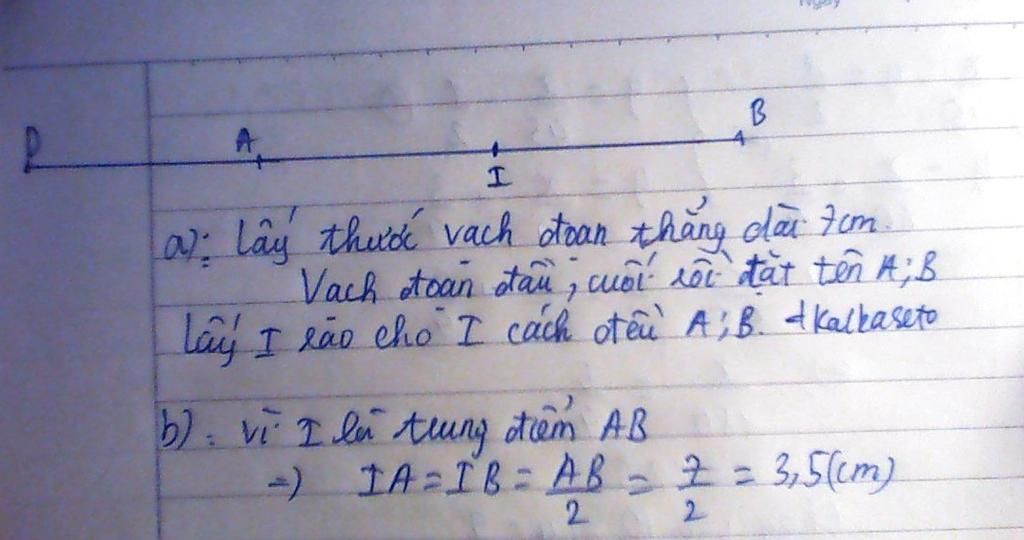 Ngày
D A B
I
a): Lấy thước vạch đoạn thẳng dài 7cm.
Vạch đoạn đầu, cuối rồi đặt tên A; B
lấy I sao cho I cách đều A; B.
b). Vì I là trung điểm AB
=> IA = IB = AB/2 = 7/2 = 3,5(cm)